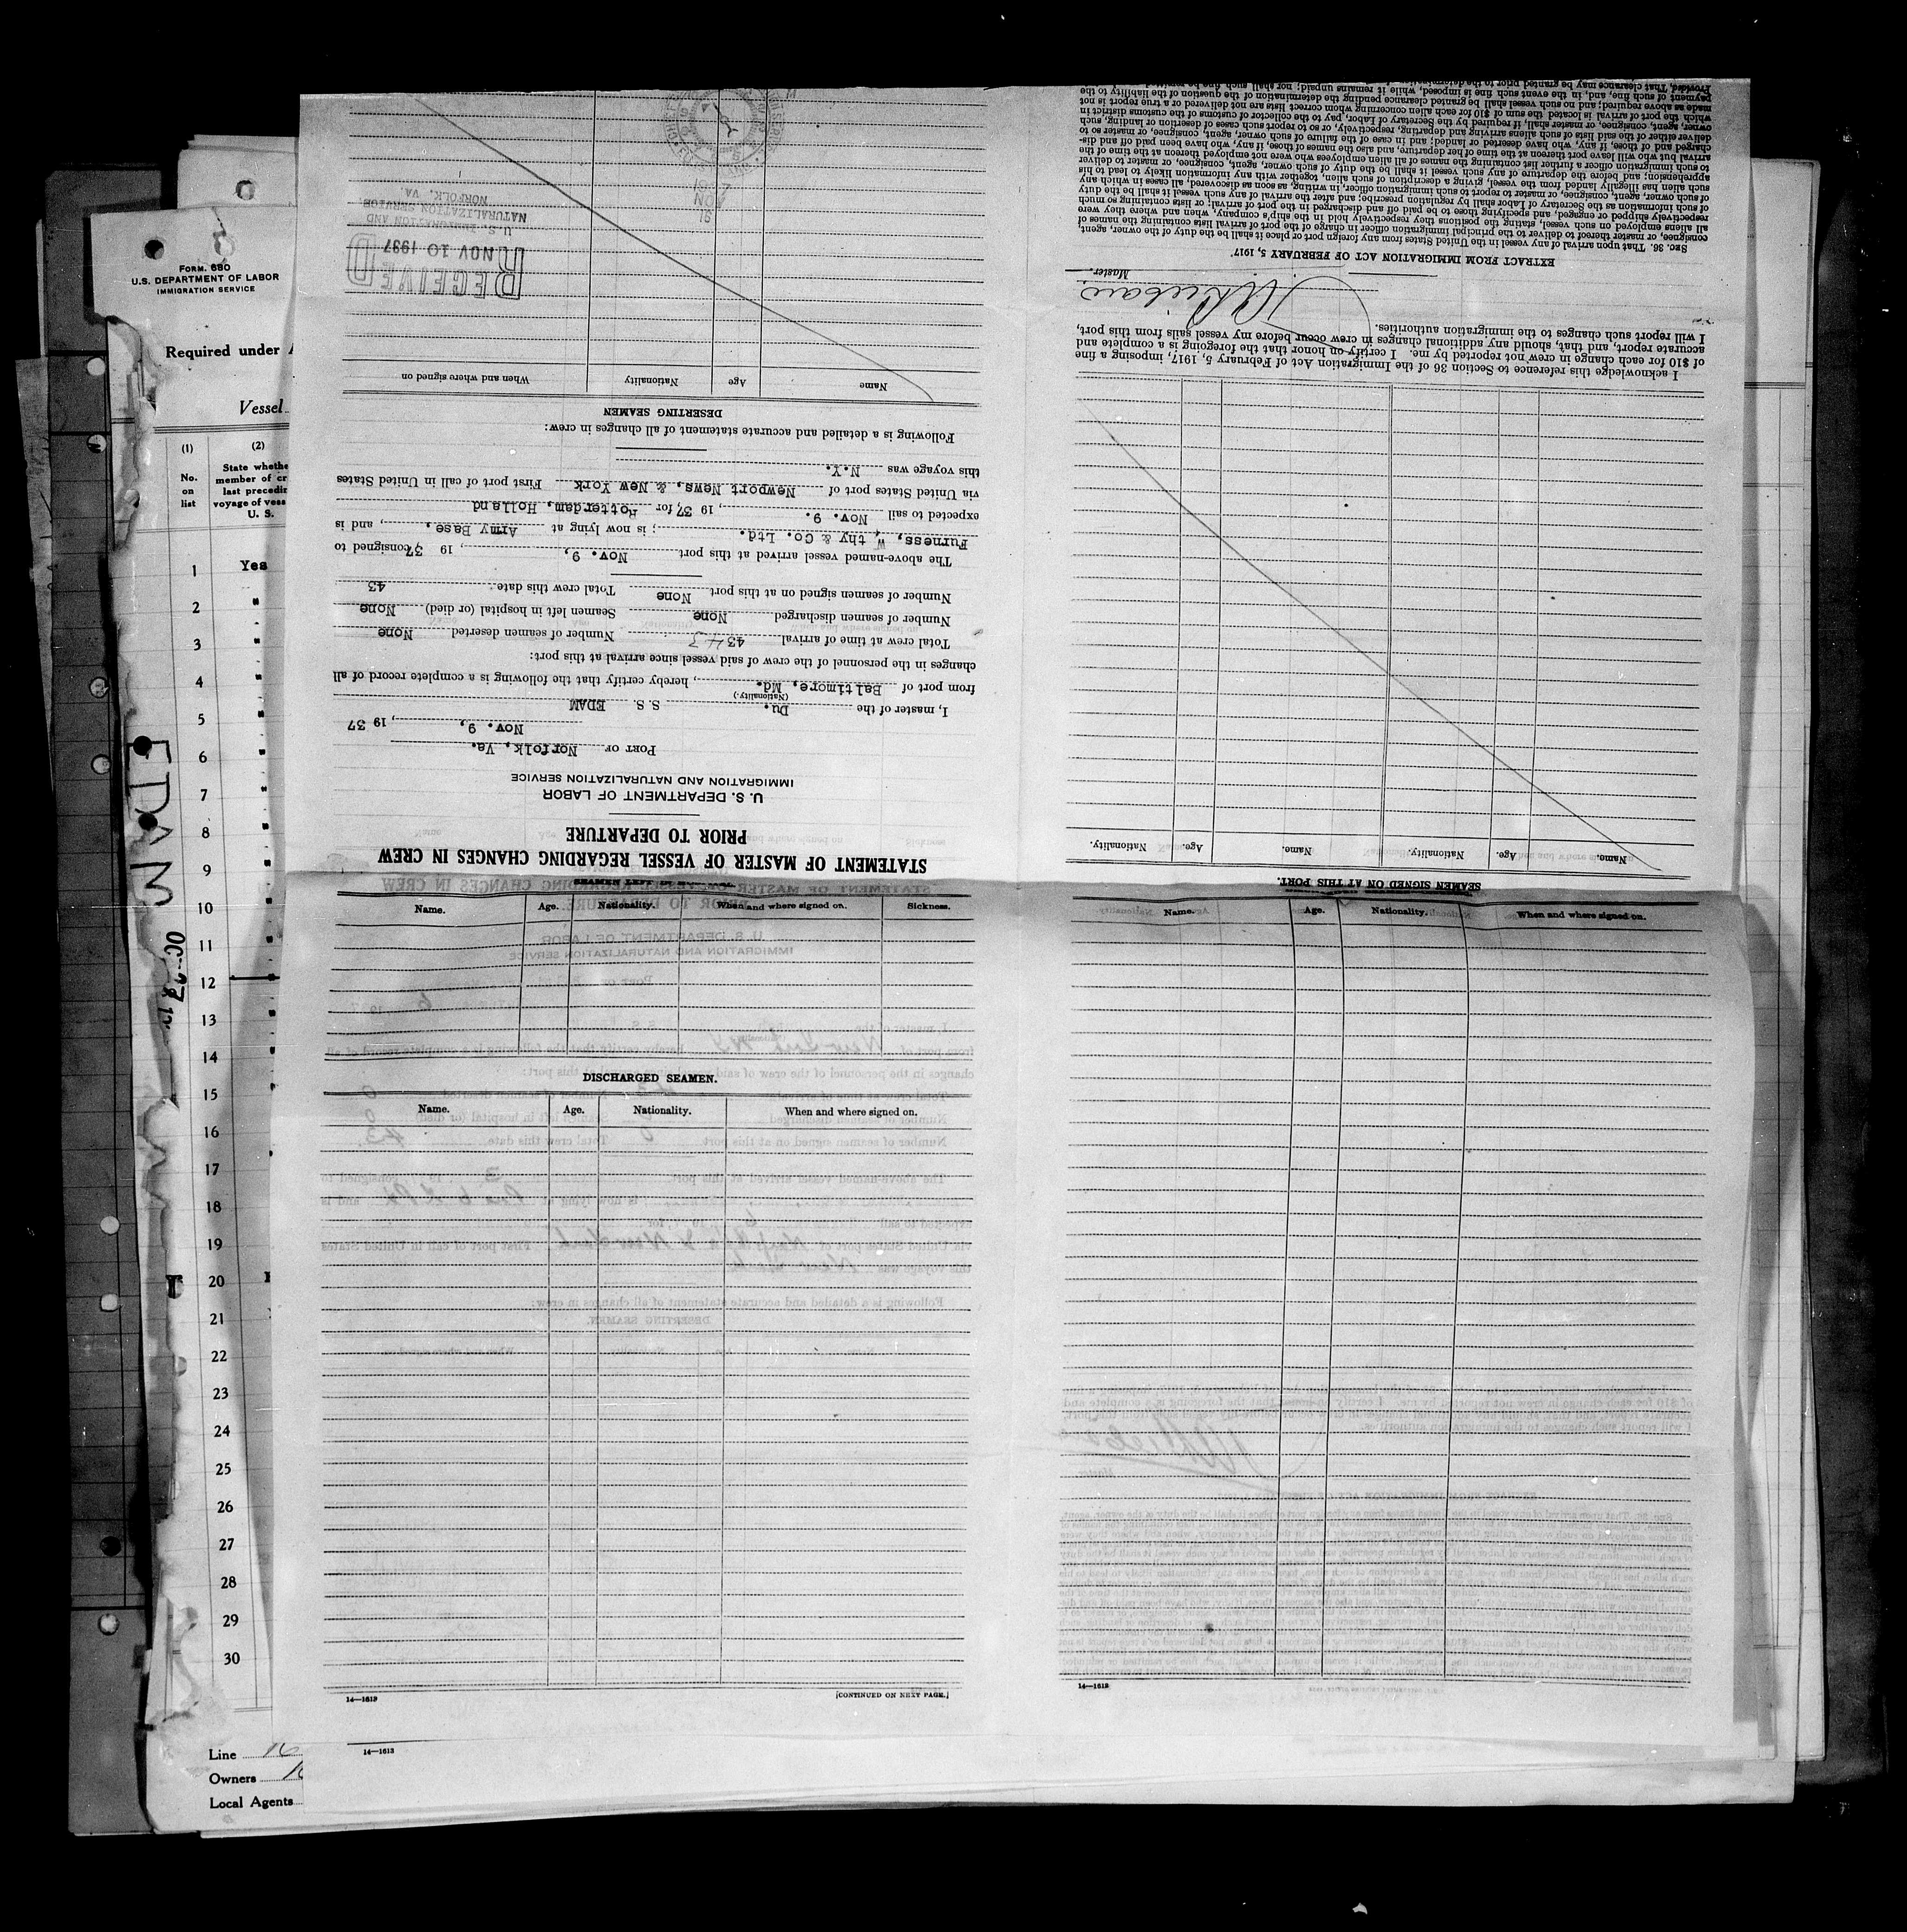 FORM. 680
U.S. DEPARTMENT OF LABOR
IMMIGRATION SERVICE
Required under
Vessel
(1)
(2)
No.
on
list
State whethe
member of cr
last precedin
voyage of vess
U. S.
1
Yes
2
"
3
"
4
"
5
"
6
"
7
"
8
"
9
"
10
"
11
"
12
"
13
"
14
"
15
"
16
17
18
19
20
21
22
23
24
25
26
27
28
29
30
EDAM
Line
Owners
Local Agents
STATEMENT OF MASTER OF VESSEL REGARDING CHANGES IN CREW
PRIOR TO DEPARTURE
U. S. DEPARTMENT OF LABOR
IMMIGRATION AND NATURALIZATION SERVICE
PORT OF Norfolk, Va.
Nov. 9, 19 37
I, master of the Du. S. S. EDAM
(Nationality.)
from port of Baltimore, Md. , hereby certify that the following is a complete record of all
changes in the personnel of the crew of said vessel since arrival at this port:
Total crew at time of arrival 43 43 Number of seamen deserted None
Number of seamen discharged None Seamen left in hospital (or died) None
Number of seamen signed on at this port None Total crew this date 43
The above-named vessel arrived at this port Nov. 9, , 19 37 consigned to
Furness, W thy & Co. Ltd. ; is now lying at Army Base, , and is
expected to sail Nov. 9. , 19 37 for Rotterdam, Holland
via United States port of Newport News, & New York First port of call in United States
this voyage was N.Y.
Following is a detailed and accurate statement of all changes in crew:
DESERTING SEAMEN
Name Age Nationality When and where signed on
RECEIVED
NOV 10 1937
U.S. IMMIGRATION AND
NATURALIZATION SERVICE,
NORFOLK, VA.
SEAMEN SIGNED ON AT THIS PORT.
Name. Age. Nationality. Name. Age. Nationality.
I acknowledge this reference to Section 36 of the Immigration Act of February 5, 1917, imposing a fine
of $10 for each change in crew not reported by me. I certify on honor that the foregoing is a complete and
accurate report, and that, should any additional changes in crew occur before my vessel sails from this port,
I will report such changes to the immigration authorities.
Master.
EXTRACT FROM IMMIGRATION ACT OF FEBRUARY 5, 1917
SEC. 36. That upon arrival of any vessel in the United States from any foreign port or place it shall be the duty of the owner, agent,
consignee, or master thereof to deliver to the principal immigration officer in charge of the port of arrival lists containing the names of
all aliens employed on such vessel, stating the positions they respectively hold in the ship's company, when and where they were
respectively shipped or engaged, and specifying those to be paid off and discharged in the port of arrival; or lists containing so much
of such information as the Secretary of Labor shall by regulation prescribe; and after the arrival of any such vessel it shall be the duty
of such owner, agent, consignee, or master to report to such immigration officer, in writing, as soon as discovered, all cases in which any
such alien has illegally landed from the vessel, giving a description of such alien, together with any information likely to lead to his
apprehension; and before the departure of any such vessel it shall be the duty of such owner, agent, consignee, or master to deliver
to such immigration officer a further list containing the names of all alien employees who were not employed thereon at the time of the
arrival but who will leave port thereon at the time of her departure, and also the names of those, if any, who have been paid off and dis-
charged and of those, if any, who have deserted or landed; and in case of the failure of such owner, agent, consignee, or master so to
deliver either of the said lists of such aliens arriving and departing, respectively, or so to report such cases of desertion or landing, such
owner, agent, consignee, or master shall, if required by the Secretary of Labor, pay to the collector of customs of the customs district in
which the port of arrival is located the sum of $10 for each alien concerning whom correct lists are not delivered or a true report is not
made as above required; and no such vessel shall be granted clearance pending the determination of the question of the liability to the
payment of such fine, and, in the event such fine is imposed, while it remains unpaid; nor shall such fine be
Provided, That clearance may be granted prior to the determination
Name. Age. Nationality. When and where signed on. Sickness.
DISCHARGED SEAMEN.
Name. Age. Nationality. When and where signed on.
14—1613
[CONTINUED ON NEXT PAGE.]
14—1613
Name. Age. Nationality. When and where signed on.
14—1613